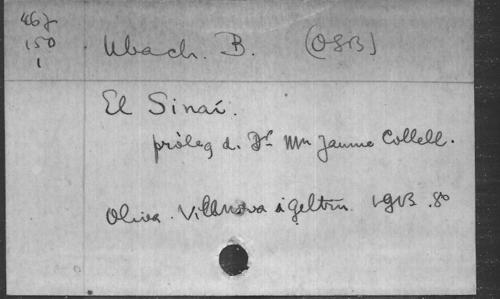 467
150
1
Ubach. B. (OSB)
El Sinaí.
pròleg d. Dr. Mn Jaume Collell.
Oliva. Vilanova i Geltru. 1913. 8º